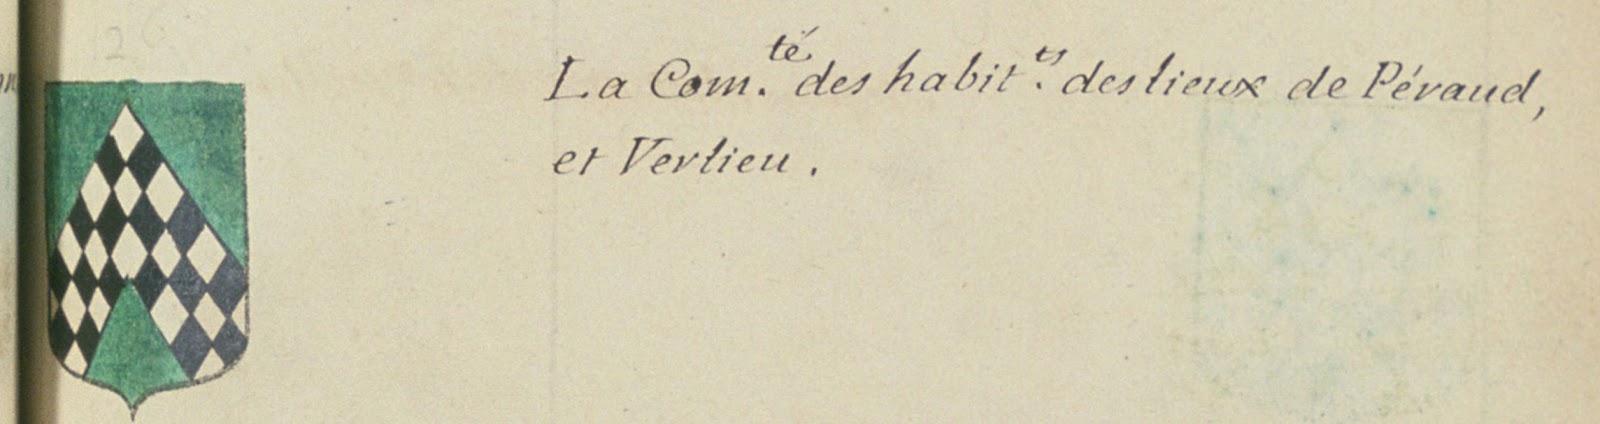 La Com.té des habit.ts des lieux de Péraud,
et Verlieu.